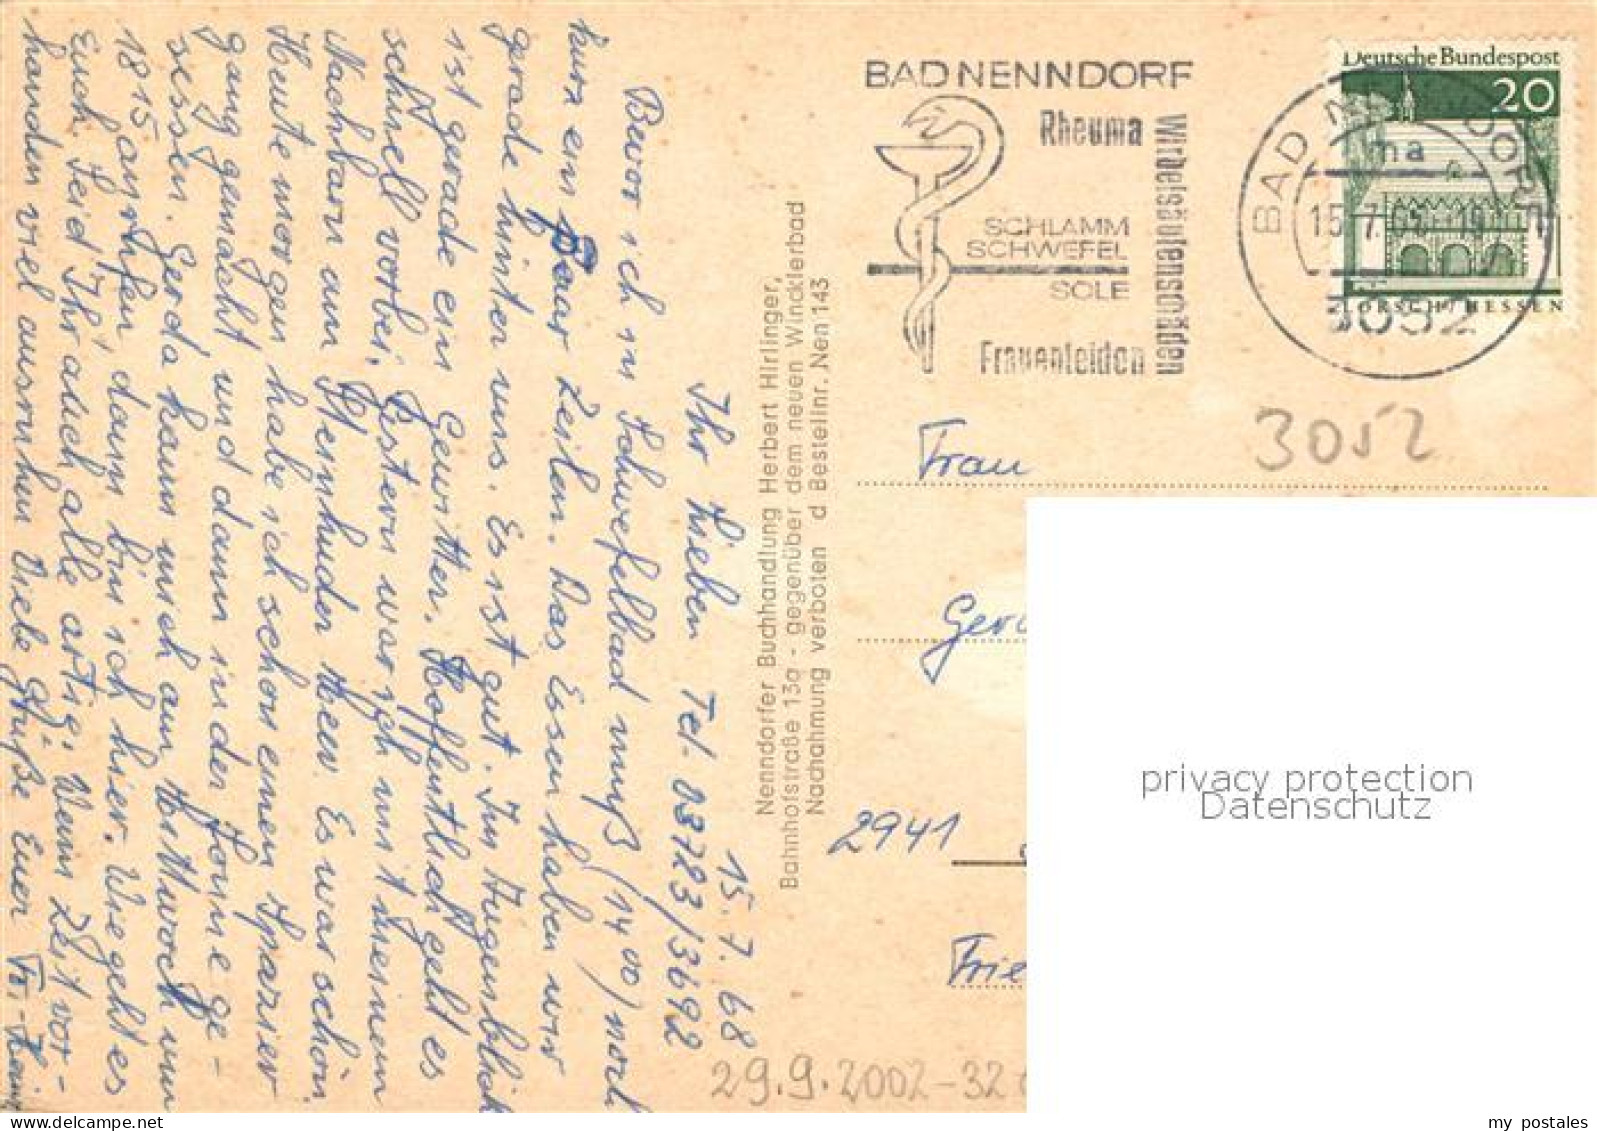 15.7.68
Ihr Lieben Tel. 03723/3692
Bevor ich in Schwefelbad muß (14⁰⁰) noch
kurz ein Paar Zeilen. Das Essen haben wir
grade hinter uns. Es ist gut. Im Augenblick
ist gerade ein Gewitter. Hoffentlich geht es
schnell vorbei. Gestern war ich mit meinem
Nachbarn am Steinhuder Meer. Es war schön.
Heute morgen habe ich schon einen Spazier
gang gemacht und dann in der Sonne ge-
sessen. Gerda kann mich am Mittwoch um
1815 anrufen, dann bin ich hier. Wie geht es
Euch. Seid Ihr auch alle artig? Wenn Zeit vor-
handen viel ausruhen Viele Grüße Euer Fr.-Heinz
Nenndorfer Buchhandlung Herbert Hirlinger,
Bahnhofstraße 13a - gegenüber dem neuen Wincklerbad
Nachahmung verboten d Bestellnr. Nen 143
BAD NENNDORF
Rheuma
Wirbelsäulenschäden
SCHLAMM
SCHWEFEL
SOLE
Frauenleiden
Deutsche Bundespost
20
LORSCH/HESSEN
BAD NENNDORF
ma
15.7.68
3052
3052
Frau
2941
29.9.2002-32
privacy protection
Datenschutz
my postales